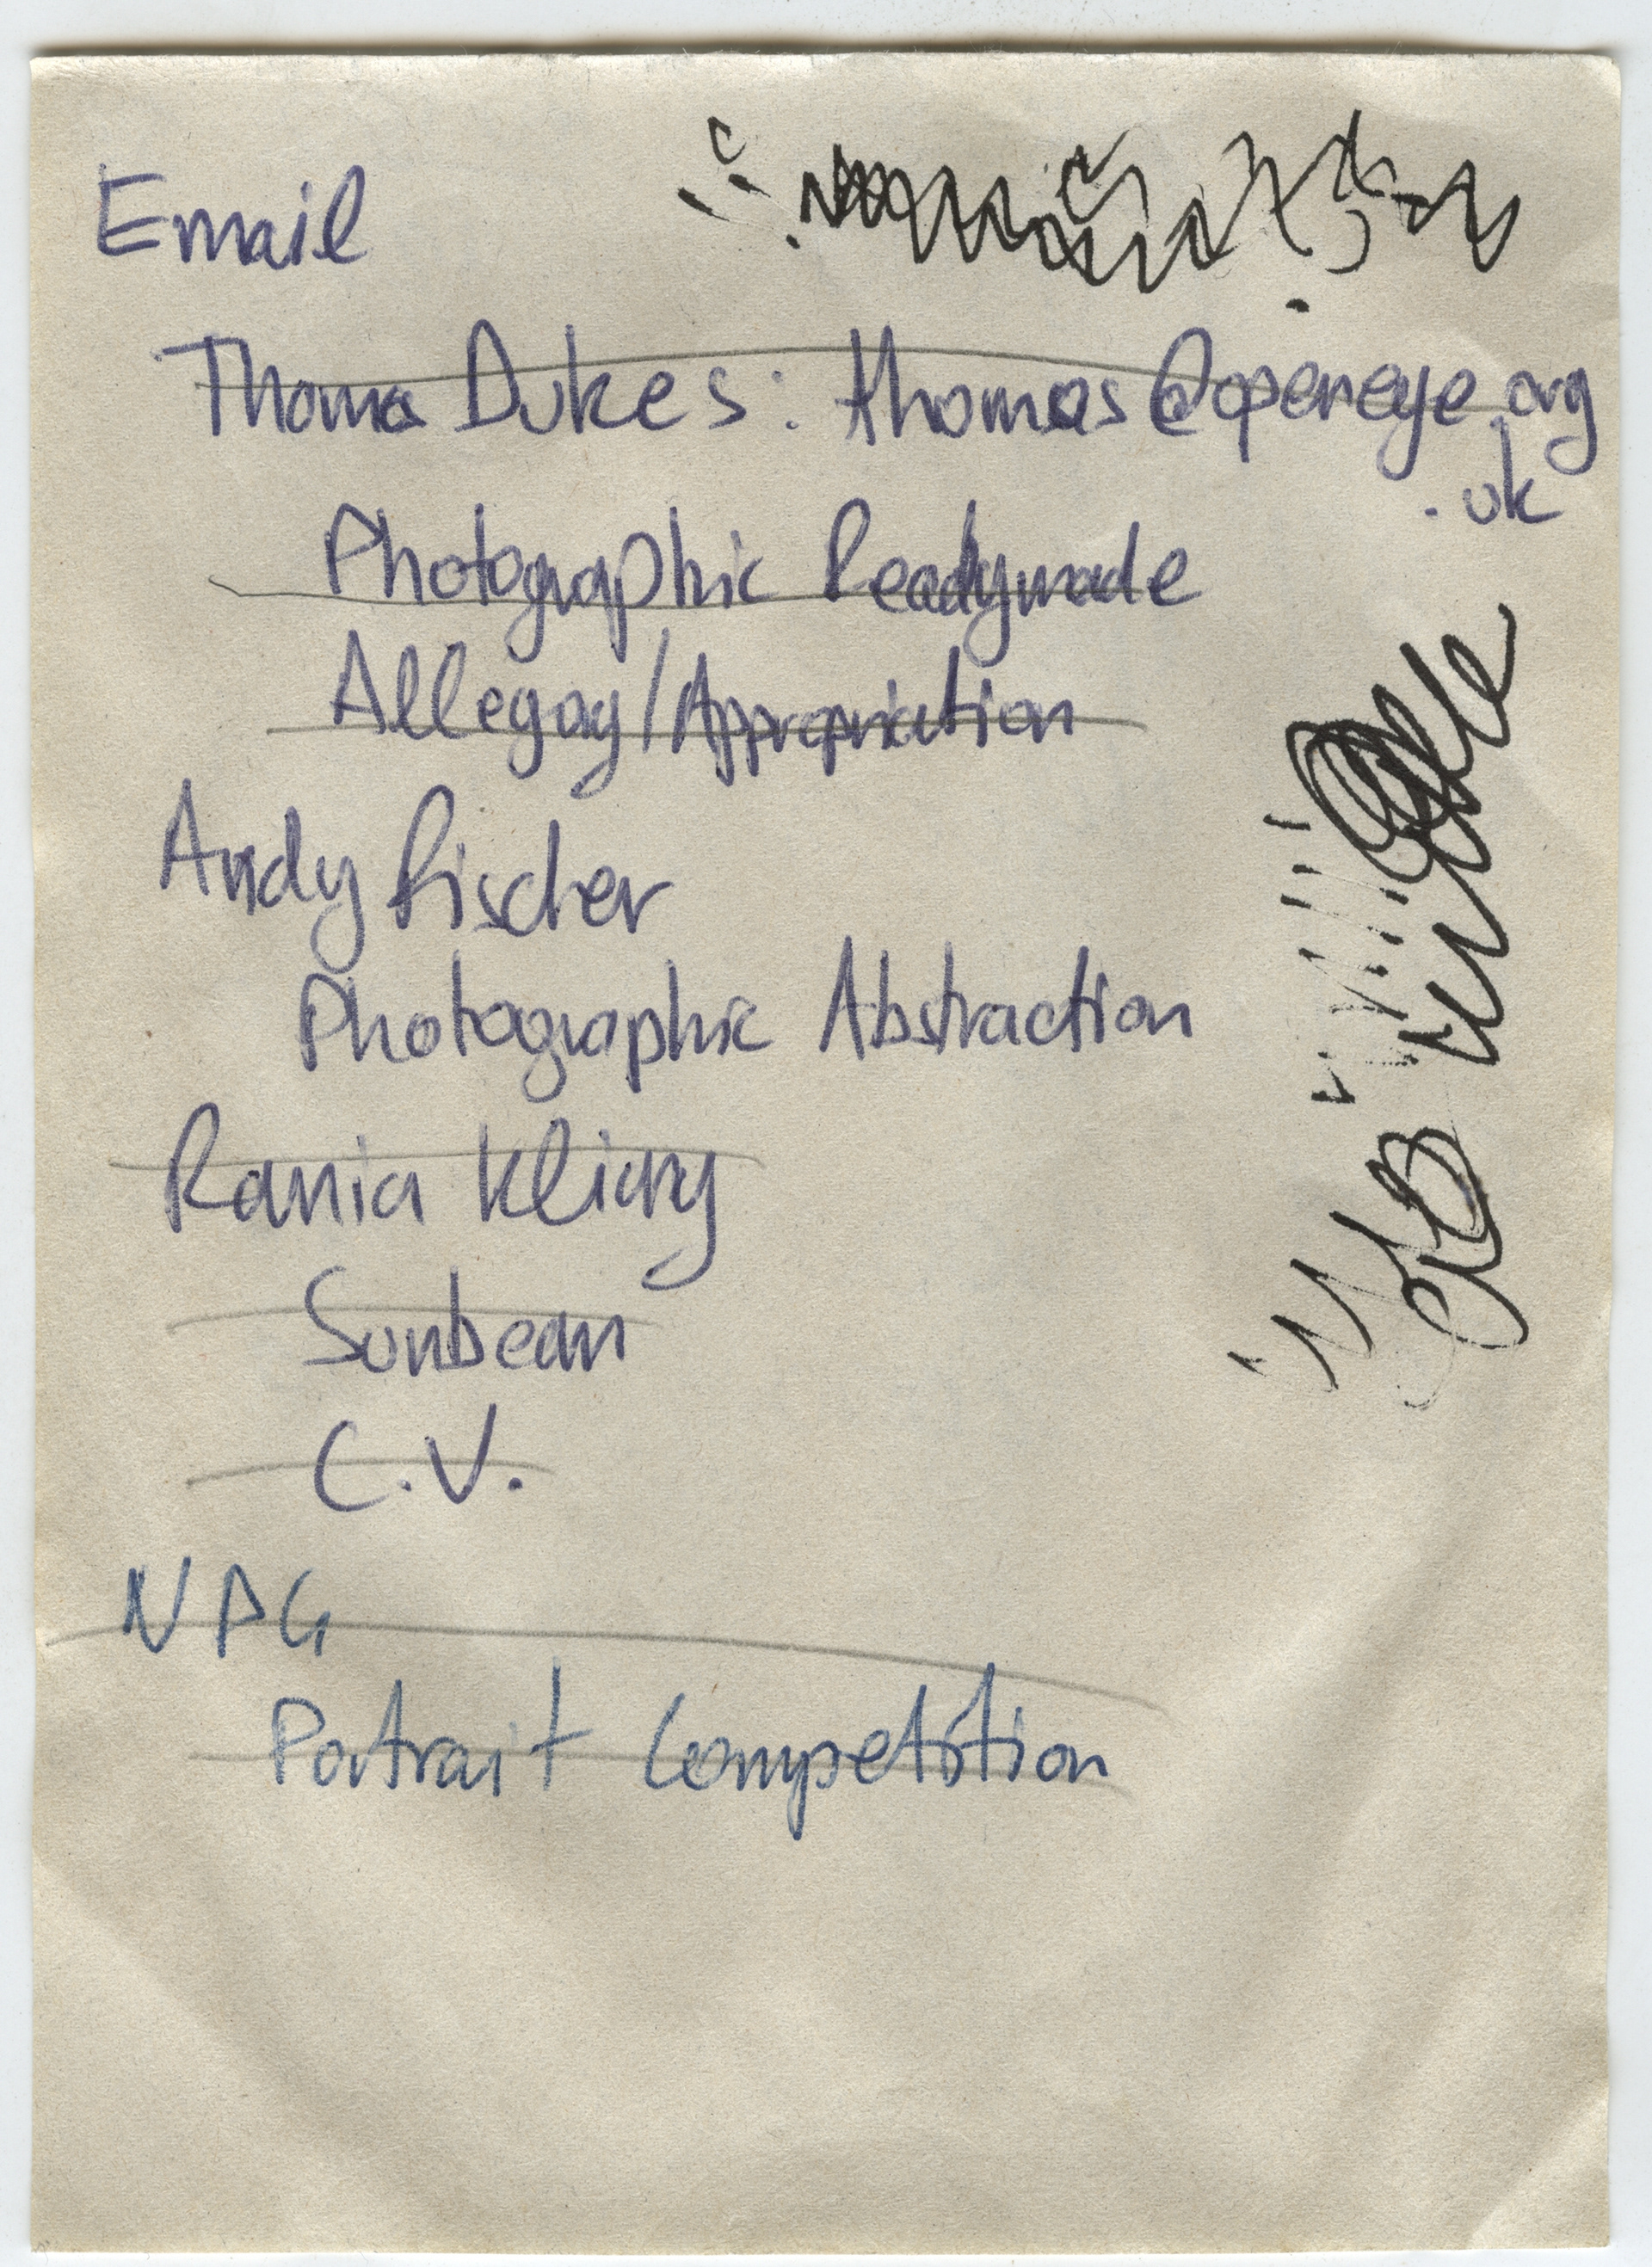 Email
Thomas Dukes: thomas@openeye.org
.uk
Photographic Readymade
Allegory/Appropriation
Andy Fischer
Photographic Abstraction
Rania
Sunbeam
C.V.
NPG
Portrait Competition